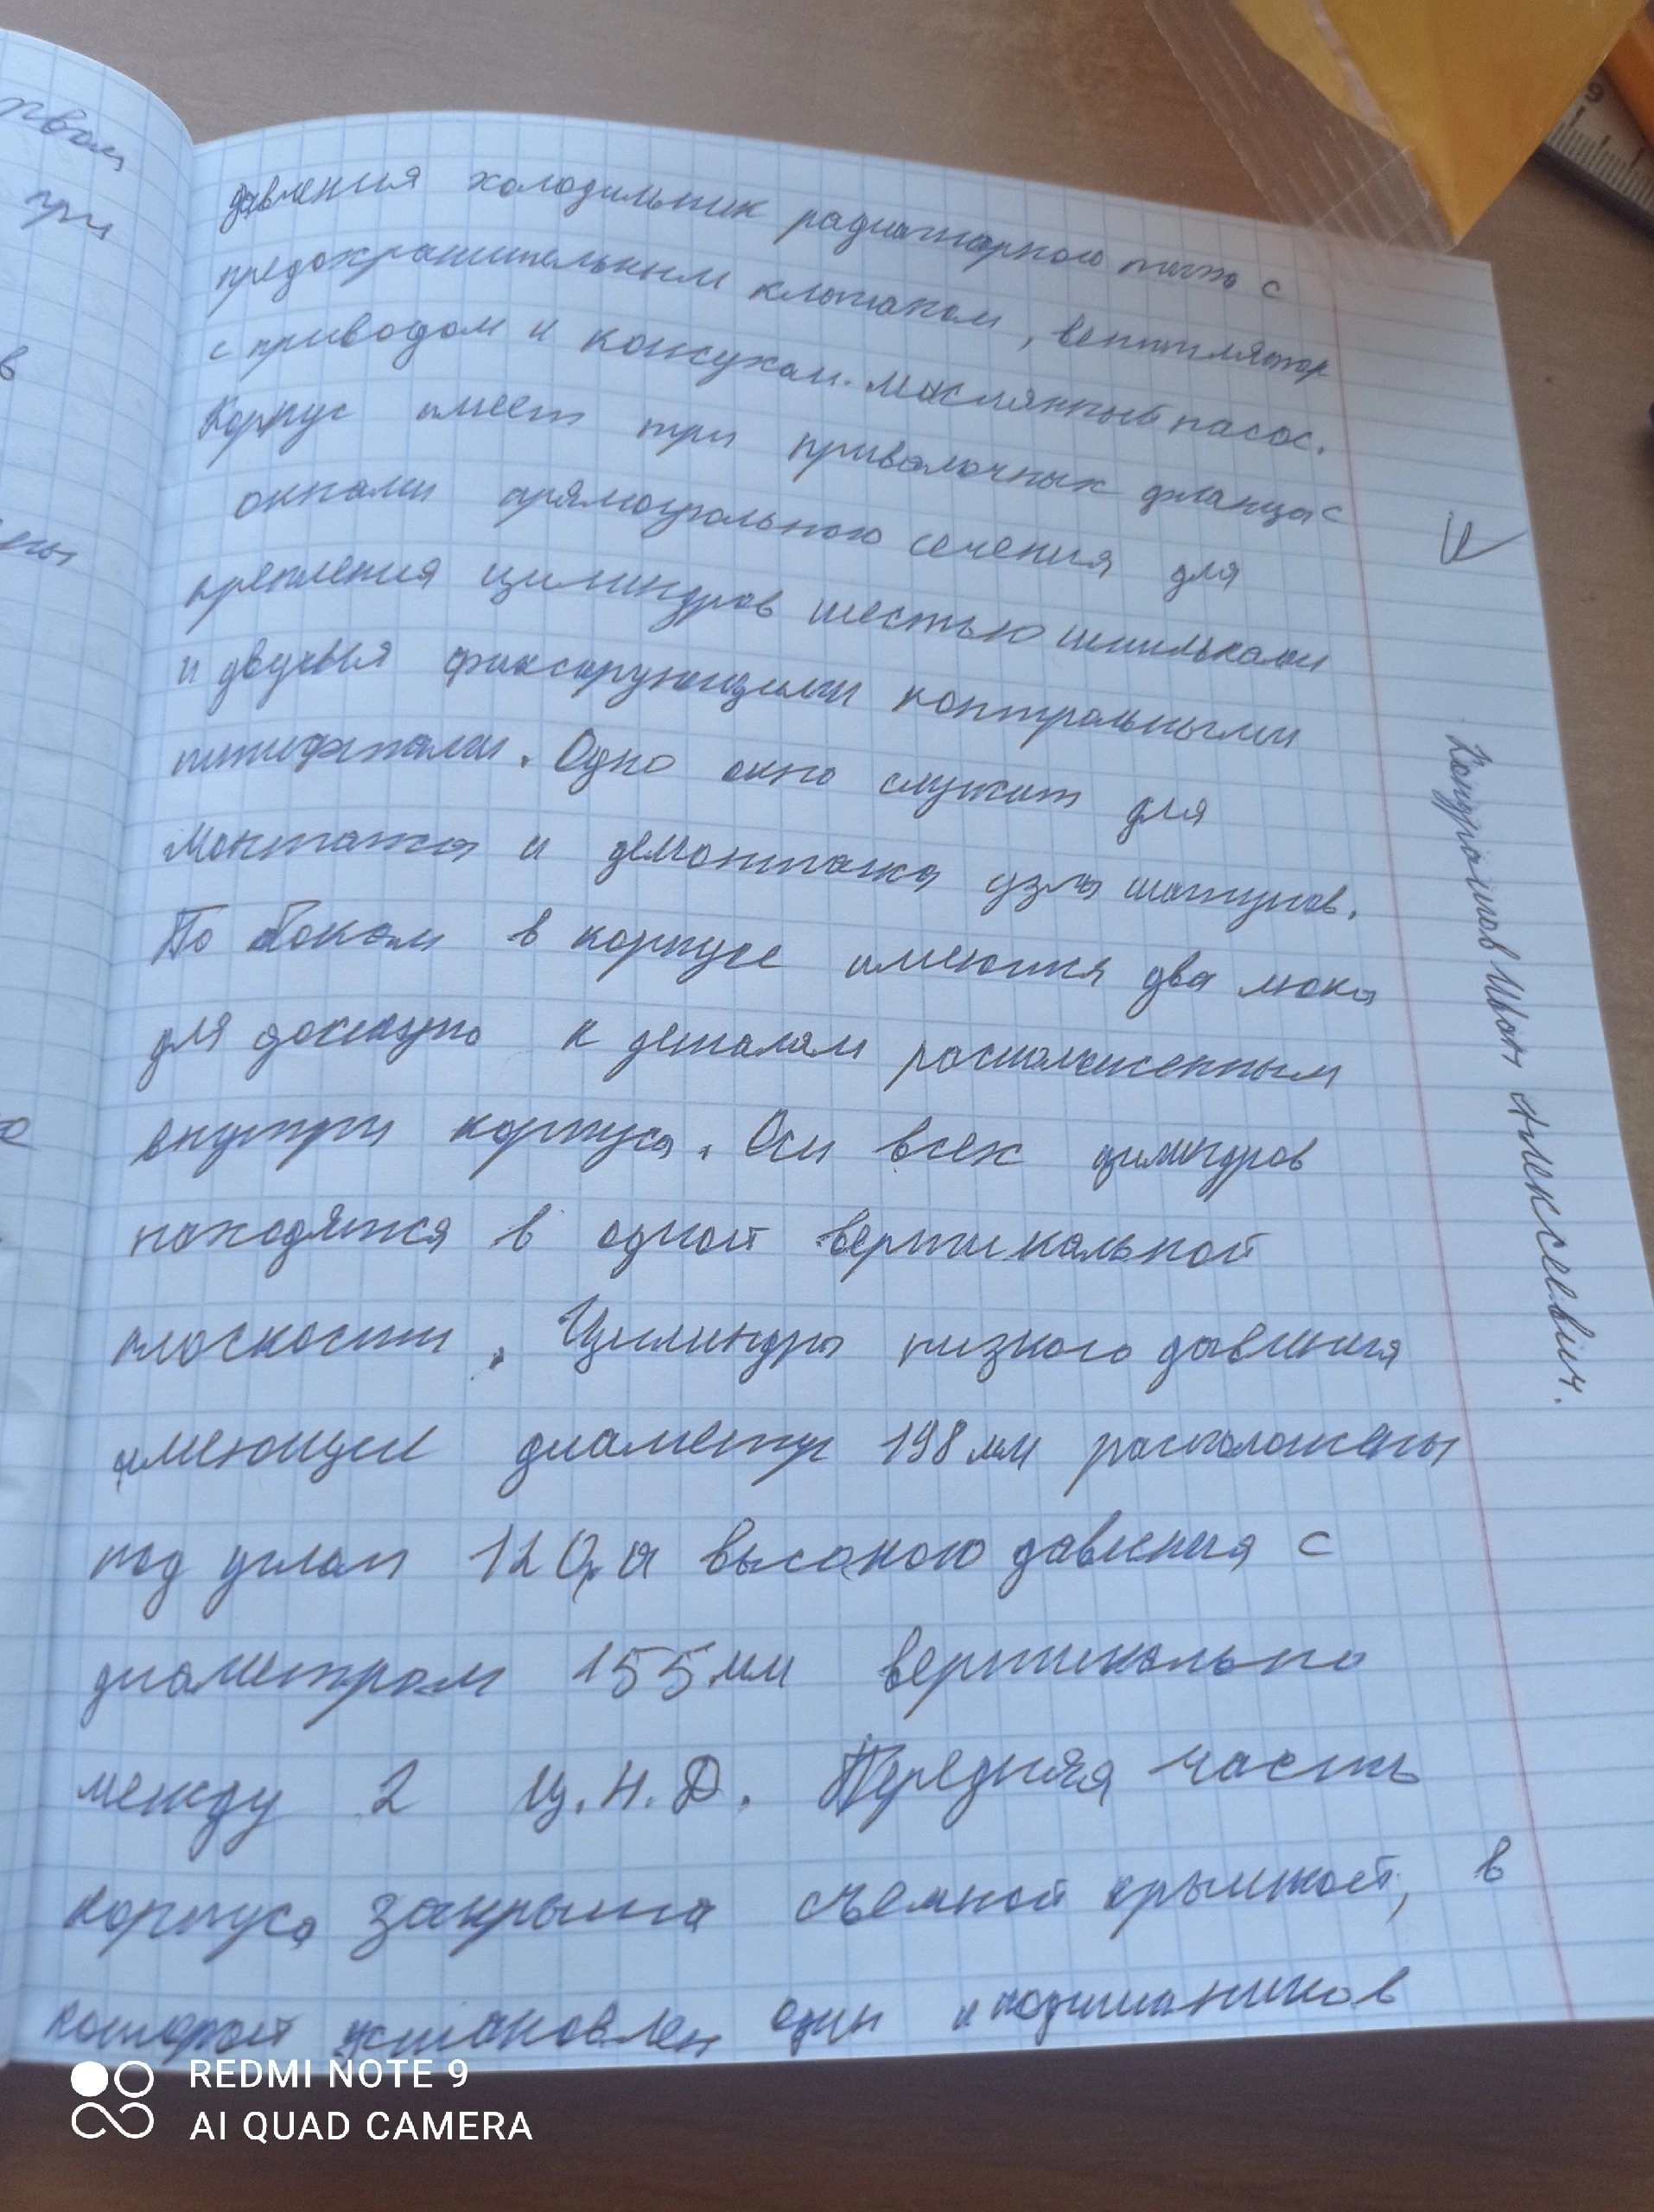 давления холодильник радиаторного типа с
предохранительным клапаном, вентилятор
с приводом и кожухам. Маслянный насос.
Корпус имеет три привалочных фланца с
окнами прямоугольного сечения для
крепления цилиндров шестью шпильками
и двумя фиксирующими контрольными
штифтами. Одно окно служит для
монтажа и демонтажа узла шатунов.
По бокам в корпусе имеются два люка
для доступа к деталям расположенным
внутри корпуса. Оси всех цилиндров
находятся в одной вертикальной
плоскости. Цилиндры низкого давления
имеющие диаметр 198 мм расположены
под углом 120, а высокого давления с
диаметром 155 мм вертикально
между 2 Ц.Н.Д. Передняя часть
корпуса закрыта съемной крышкой, в
которой установлен один и подшипников
Иван Алексеевич.
твом
при
в
ены
REDMI NOTE 9
AI QUAD CAMERA